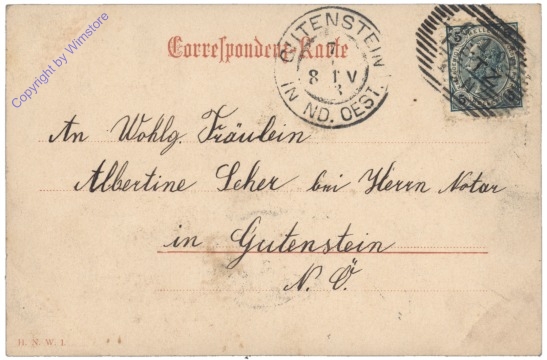 Correspondenz-Karte
GUTENSTEIN
IN ND. OEST.
An Wohlg. Fräulein
Albertine Seher bei Herrn Notar
in Gutenstein
N. Ö.
H. N. W. I.
Copyright by Wimstore